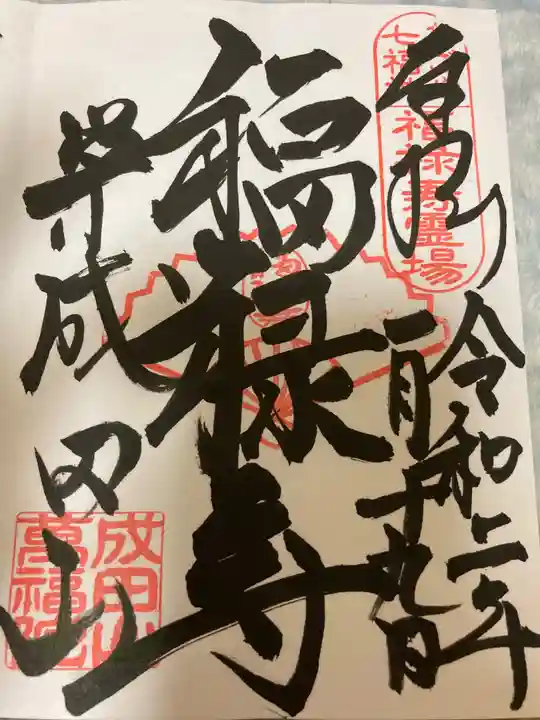 奉拝
七福神
福禄寿霊場
令和二年
一月十九日
福禄寿
成田山
成田山
萬福院